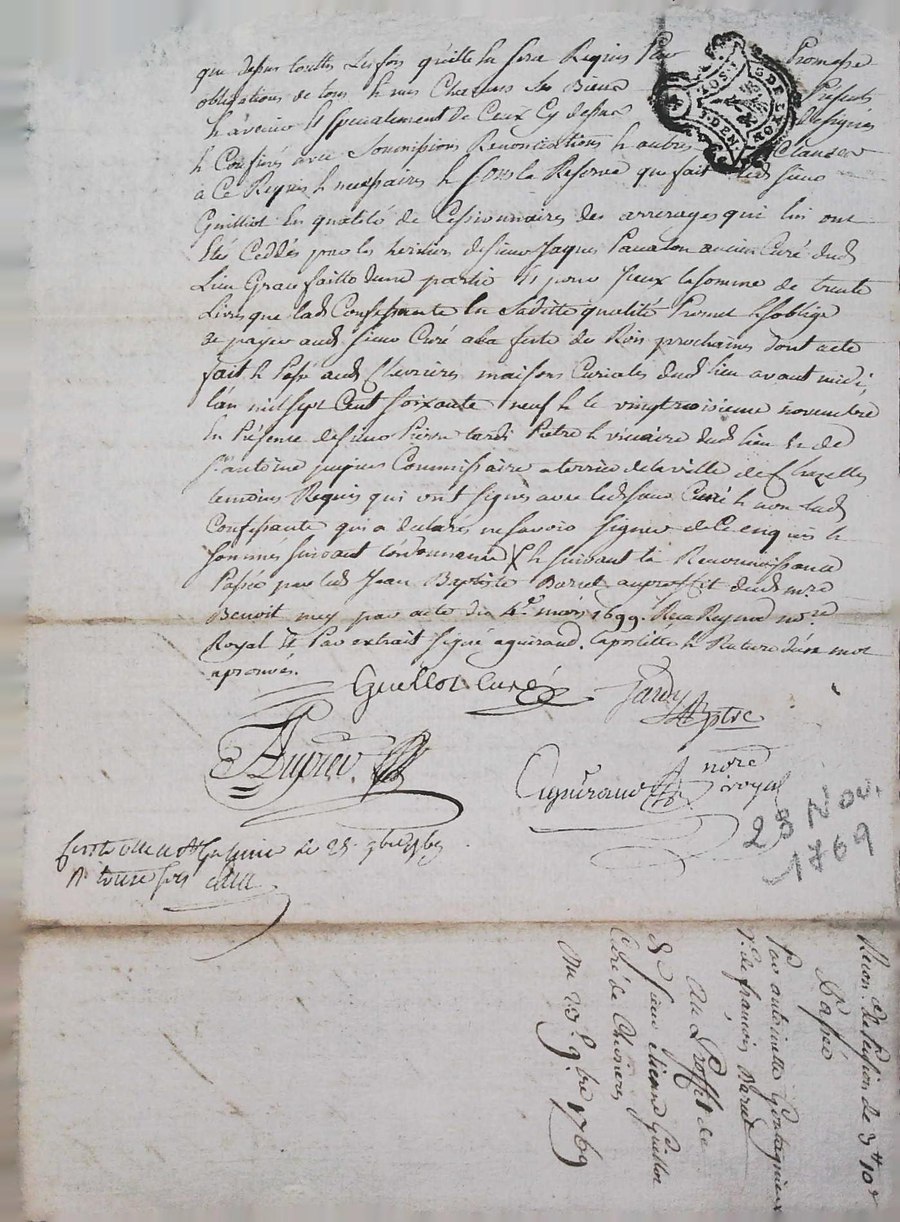 que dessus touttes Les fois qu'elle En sera Requise Par Promesse
obligations de tous & uns Chacuns ses Biens Présents
& avenir & specialement de Ceux Cy dessus designés
& Confinés avec Soumissions Renonciations & autres Clauses
à Ce Requises & necessaires & sous la Reserve que fait led sieur
Guilliot En qualité de Cessionnaires des arrerages qui lui ont
Etés Ceddés par les heritiers de sieur Jaques ancien Curé dud
Lieu Grace faitte d'une partie & pour Iceux la somme de trente
Livres que lad Confessante En Saditte qualité Promet & s'oblige
de payer aud sieur Curé a la feste des Rois prochaines dont acte
fait & Passé aud Chevrieres maisons Curiales dud lieu avant midi,
l'an mil sept Cent soixante neuf & le vingtroisieme novembre
En Présence de sieur Pierre tardi Pretre & vicaire dud lieu & de
sr antoine Commissaire a terrier de la ville de Chazelles
temoins Requis qui ont signés avec led sieur Curé & non lad
Confessante qui a declaré ne savoir signer de Ce enquise &
sommée suivant L'ordonnance & suivant la Reconnoissance
Passée par led Jean Baptiste Barcel au proffit dud mre
Benoit par acte du 4e mars 1699. Reçu Reymd nore
Royal & Par extrait signé aguiraud. l'apostille & Rature d'un mot
aprouvés.
Guilliot curé Tardy
ptre
Aguiraud nore
royal
23 Nov.
1769
le 25. 9bre 1769
R treize sols
Recon. de Pension de 3tt 10s
Passée
Par antoinette
Ve de françois Barcel
Au Proffit de
de sieur Guilliot
Curé de Chevrieres
Du 23e 9bre 1769